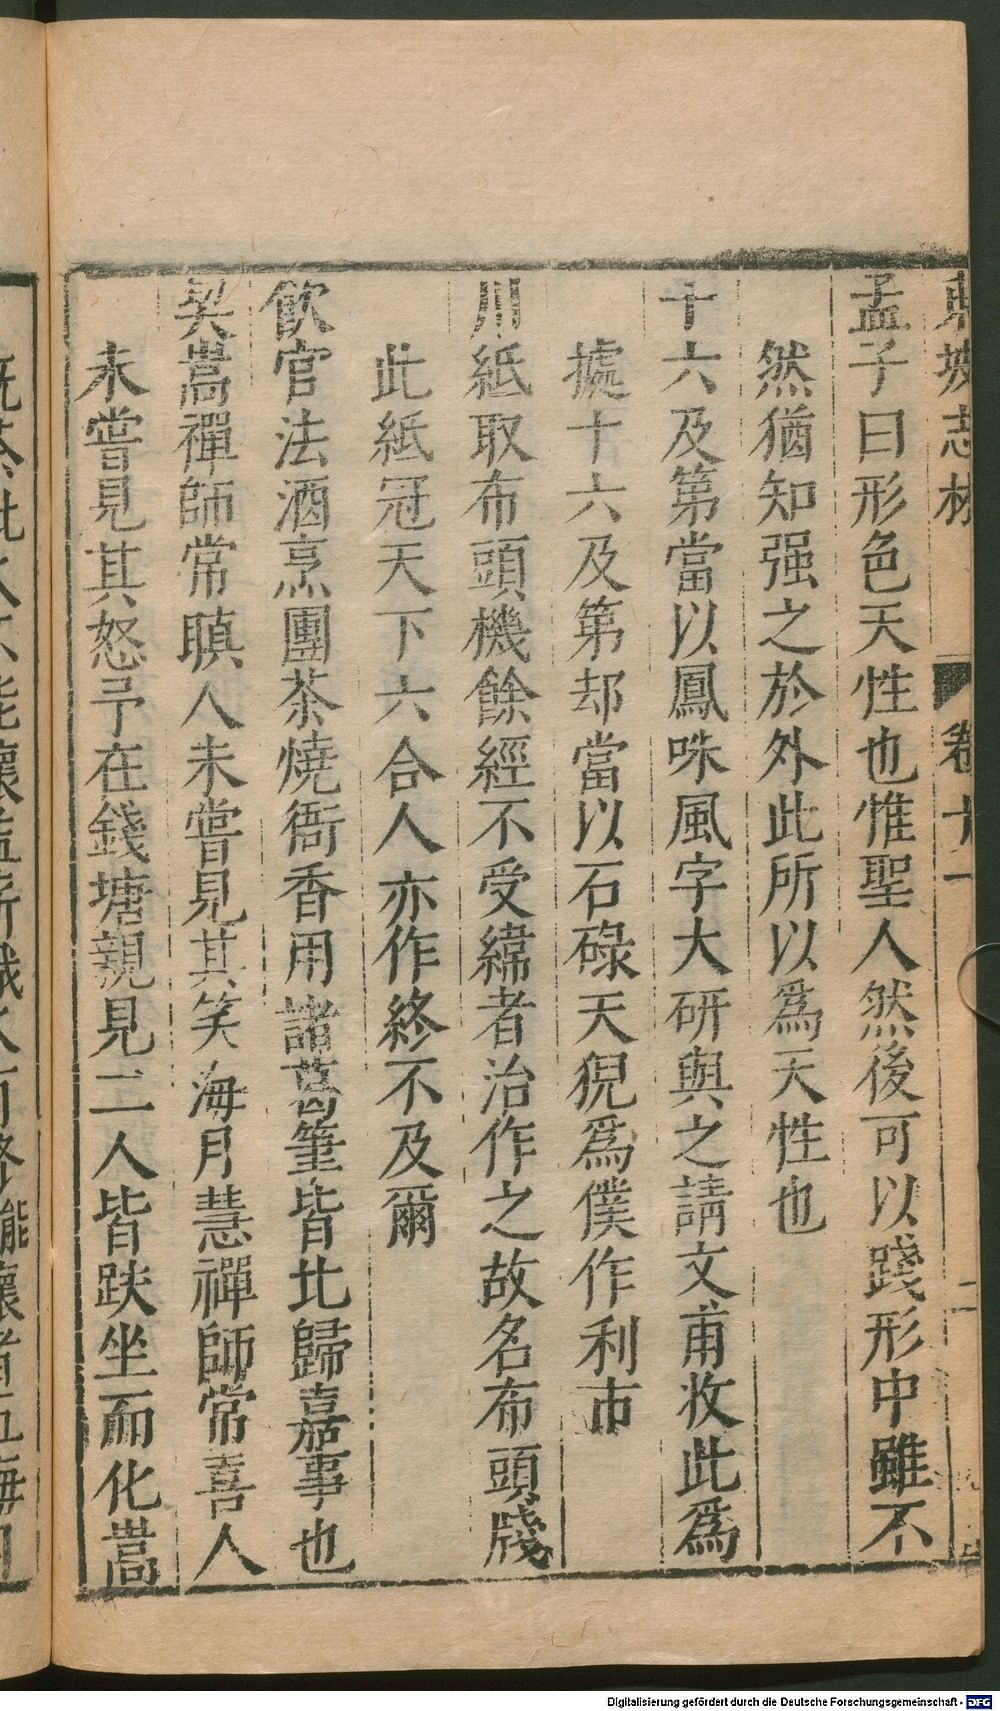 東坡志林 卷十一 二
孟子曰形色天性也惟聖人然後可以踐形中雖不
然猶知强之於外此所以爲天性也
十六及第當以鳳咮風字大硏與之請文甫收此爲
據十六及第却當以石碌天猊爲僕作利市
川紙取布頭機餘經不受緯者治作之故名布頭牋
此紙冠天下六合人亦作終不及爾
飮官法酒烹團茶燒衙香用諸葛筆皆北歸嘉事也
契嵩禪師常瞋人未嘗見其笑海月慧禪師常喜人
未嘗見其怒予在錢塘親見二人皆趺坐而化嵩
旣茶毗火不能壞益薪熾火有終能壞者五海月
Digitalisierung gefördert durch die Deutsche Forschungsgemeinschaft - DFG